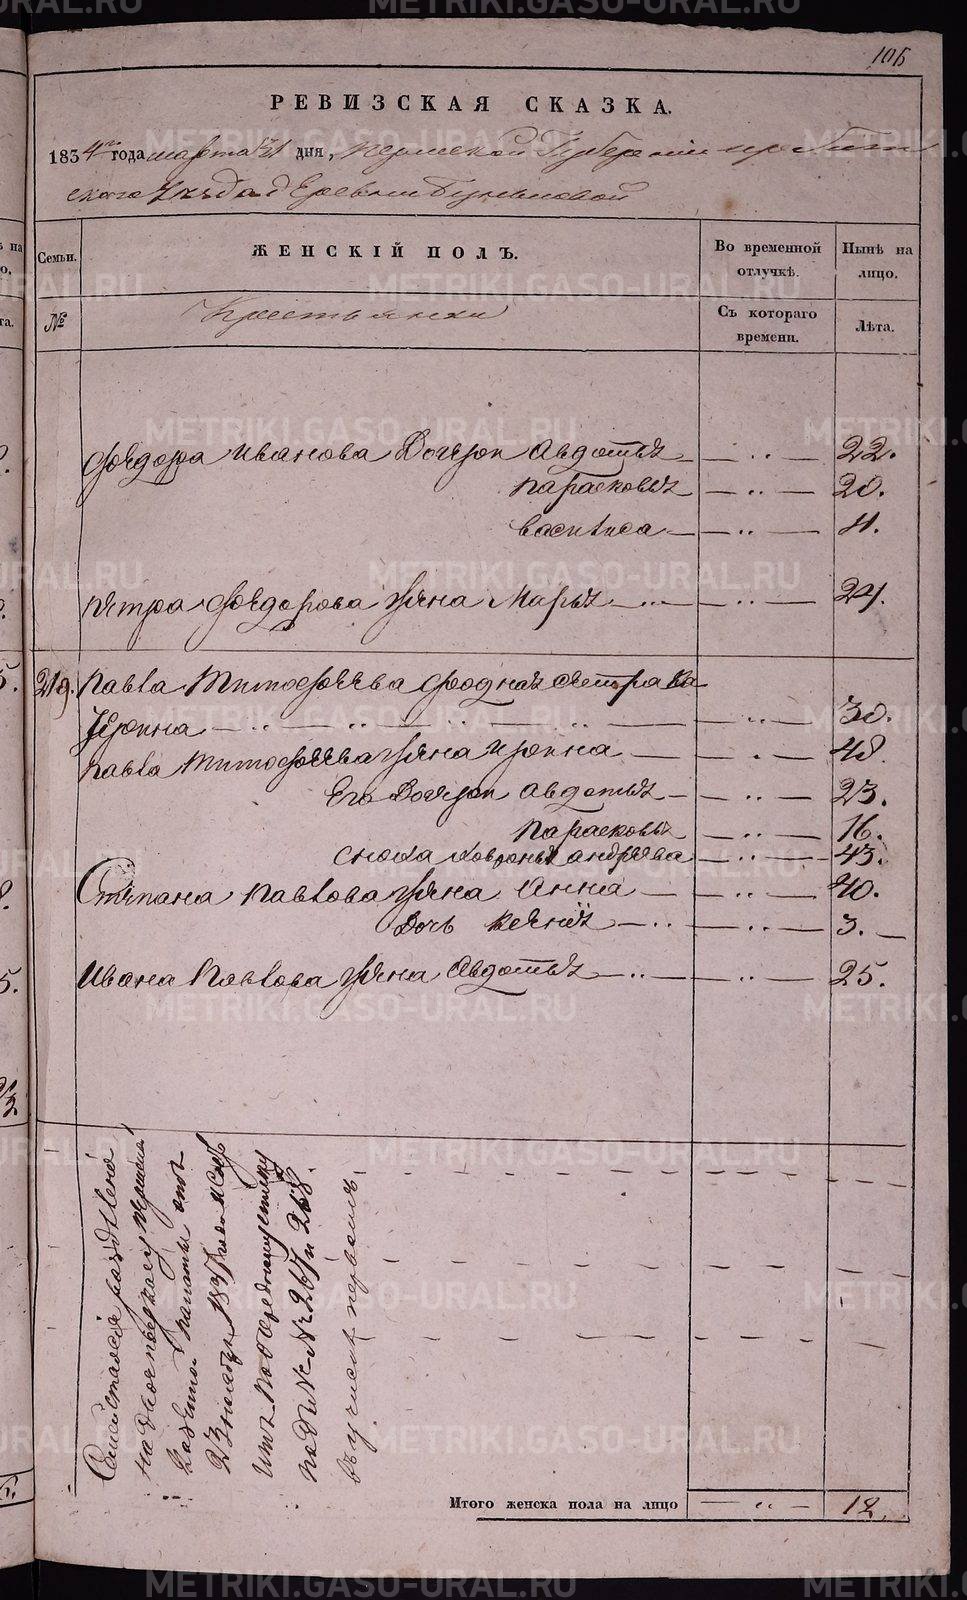 106
РЕВИЗСКАЯ СКАЗКА.
1834 года марта 31 дня, Пермской Губернии Ирбит
ского Уезда д Еревни
Семьи. ЖЕНСКІЙ ПОЛЪ. Во временной отлучкѣ. Нынѣ на лицо.
№ Крестьянки Съ котораго времени. Лѣта.
Фѣдора Иванова Дочери Авдотья — „ — 22.
Парасковья — „ — 20.
Василиса — „ — 11.
Петра Фѣдорова жена Марья — „ — 24.
219. Павла Тимофѣева родная сестра
Ирина — „ — 30.
Павла Тимофѣева жена Ирина — „ — 48.
Его Дочери Авдотья — „ — 23.
Парасковья — „ — 16.
сноха Ховронья андрѣева — „ — 43.
Степана Павлова жена Анна — „ — 40.
Дочь Ксенія — „ — 3.
Ивана Павлова жена Авдотья — „ — 25.
Семейство сіе раздѣлено
на двое по указу пермской
казенной палаты отъ
23 ноября
подъ № № 267 и 268.
въ числѣ первомъ
Итого женска пола на лицо — „ — 12.
METRIKI.GASO-URAL.RU